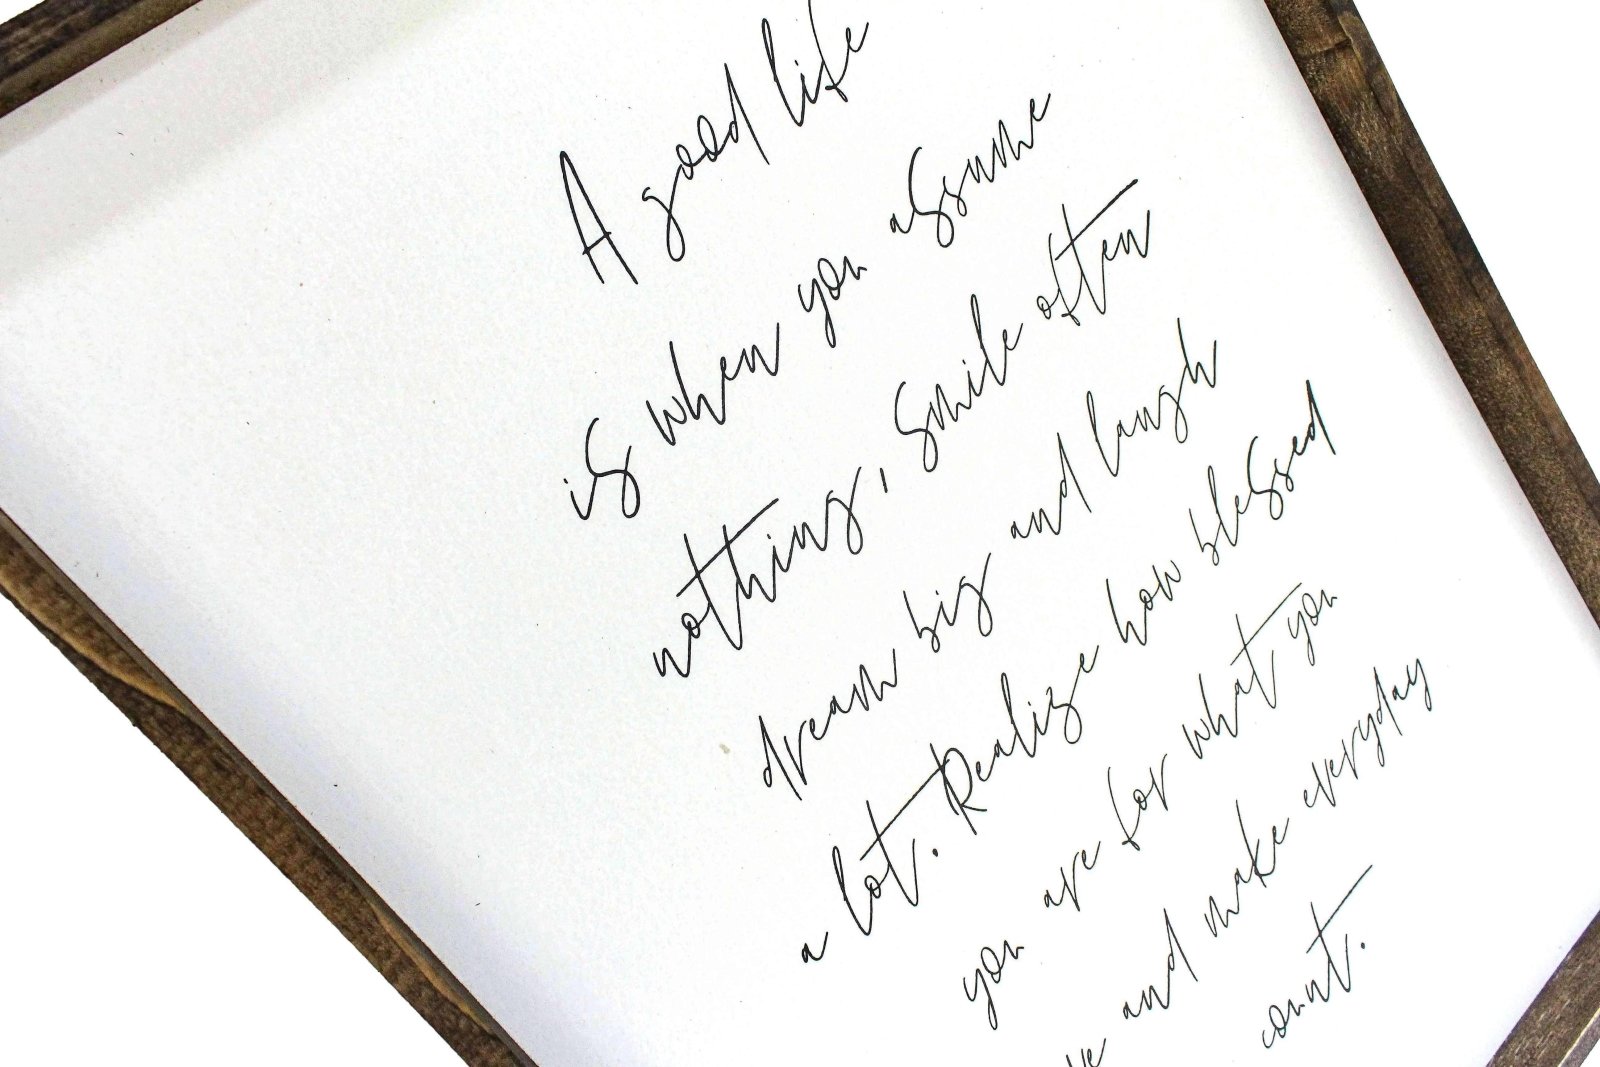 A good life
is when you assume
nothing, smile often
dream big and laugh
a lot. Realize how blessed
you are for what you
and make everyday
count.